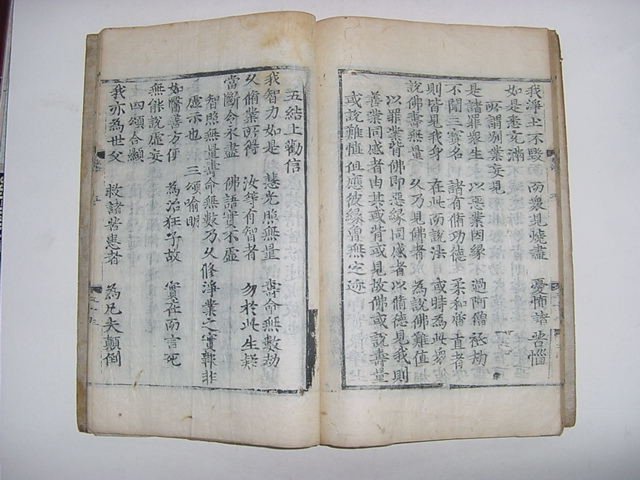 我淨土不毀 而衆見燒盡 憂怖諸苦惱
如是悉充滿
所謂別業妄見
是諸罪衆生 以惡業因緣 過阿僧祇劫
不聞三寶名 諸有修功德 柔和質直者
則皆見我身 在此而說法 或時為此衆
說佛壽無量 久乃見佛者 為說佛難值
以罪業背佛即惡緣同感者以脩德見我則
善業同感者由其或背或見故佛或說壽量
或說難值但應彼緣曾無定迹
五結上勸信
我智力如是 慧光照無量 壽命無數劫
久脩業所得 汝等有智者 勿於此生疑
當斷令永盡 佛語實不虛
智照無量壽命無數乃久修淨業之實報非
虛亦也 三頌喻明
如醫善方便 為治狂子故 實在而言死
無能說虛妄
四頌合顯
我亦為世父 救諸苦患者 為凡夫顛倒